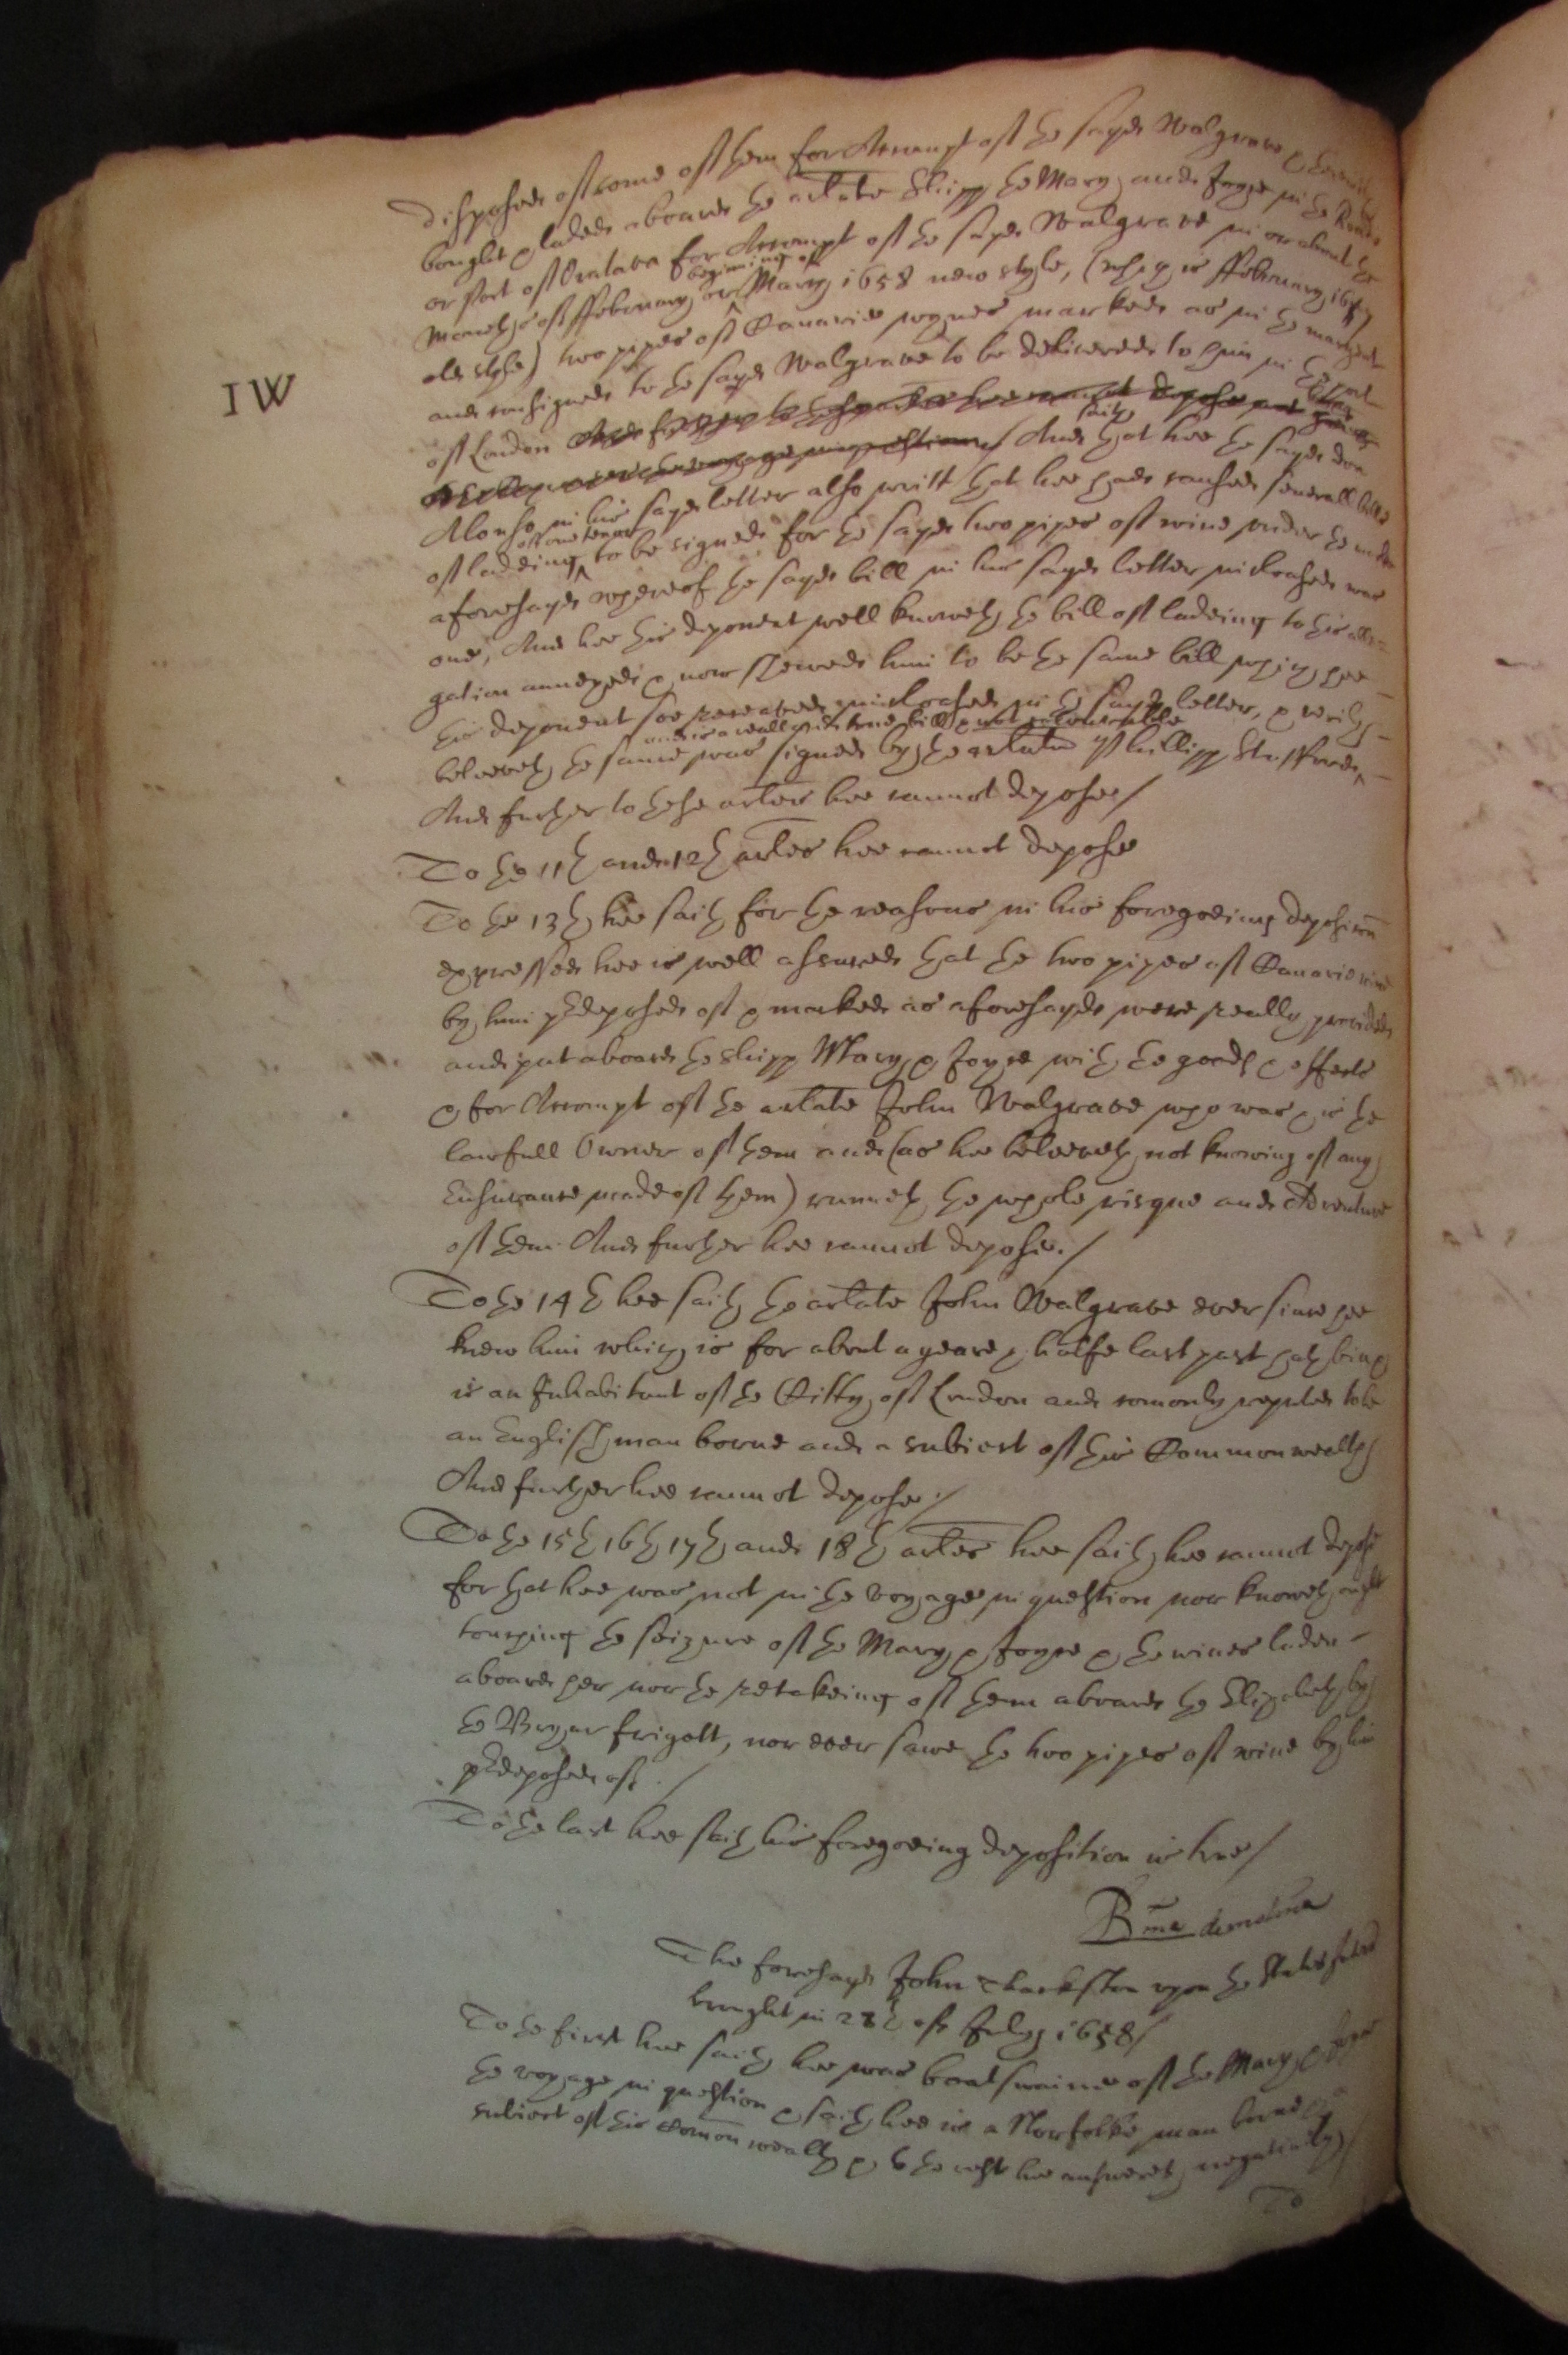 disposed of some of them for Accompt of the sayd Walgrave &
bought & laded aboard the arlate Shipp the Mary and Joyce in the Roade
or Port of Oratava for Accompt of the sayd Walgrave in or about the
Moneths of ffebruary or beginning of March 1658 new style, (which is ffebruary 1657
old style) two pipes of Canarie wynes marked as in the margent
IW
and consigned to the sayd Walgrave to be delivered to him in the Port
of London And further to these articles hee cannot depose not
the voyage in question/ And saith that hee the sayd don
Alonso in his sayd letter also writt that hee had caused severall bills
of ladeing of one tenour to be signed for the sayd two pipes of wine under the marke
aforesayd whereof the sayd bill in his sayd letter inclosed was
one, And hee this deponent well knoweth the bill of ladeing to this alle=
gation annexed & now shewed him to be the same bill which hee
this deponent soe received inclosed in the sayd letter, & verily
beleeveth the same was signed by the arlate Phillipp Stafford
and is a reall and true bill & not colourable
And further to these artles hee cannot depose/
To the 11th and 12th artles hee cannot depose
To the 13th hee saith for the reasons in his foregoeing deposicon
expressed hee is well assured that the two pipes of Canarie wine
by him predeposed of & marked as aforesayd were really provided
and put aboard the shipp Mary & Joyce with the goods & effects
& for Accompt of the arlate John Walgrave who was & is the
lawfull Owner of them and (as hee beleeveth not knowing of any
Ensurance made of them) runneth the whole risque and Adventure
of them. And further hee cannot depose./
To the 14th hee saith the arlate John Walgrave ever since hee
knew him which is for about a yeare & halfe last past hath bin &
is an Inhabitant of the Citty of London and comonly reputed to be
an English man borne and a subiect of this Commonwealth
And further hee cannot depose./
To the 15th 16th 17th and 18th artles hee saith hee cannot depose
for that hee was not in the voyage in question nor knoweth ought
touching the seizure of the Mary & Joyce & the wines laden
aboard her nor the retakeing of them aboard the Elizabeth by
the Bryar frigott, nor ever sawe the two pipes of wine by him
predeposed of ./
To the last hee saith his foregoeing deposition is true/
The foresayd John Thackston upon the
brought in 28th of July 1658/
To the first hee saith hee was boatswaine of the Mary & Joyce
the voyage in question & saith hee is a Norfolke man borne & a
subiect of this Comon wealth & to the rest hee answereth negatively/
To